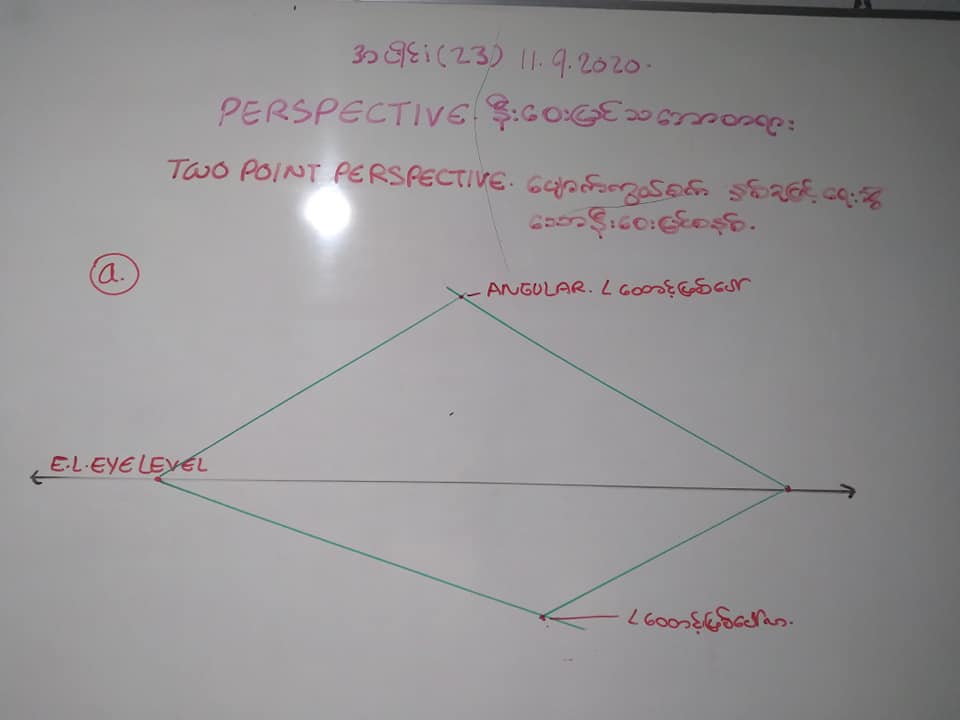 အပိုင်း (23) 11.9.2020.
PERSPECTIVE. နိုးဝေးမြင်သဘောတရား
TWO POINT PERSPECTIVE. ပျောက်ကွယ်စက် နှစ်ချင့်ရေးဆွဲ
သောနိုးဝေးမြင်စနစ်.
a.
ANGULAR. L ထောင့်ဖြစ်ပေါ်
E.L. EYE LEVEL
L ထောင့်ဖြစ်ပေါ်လာ.